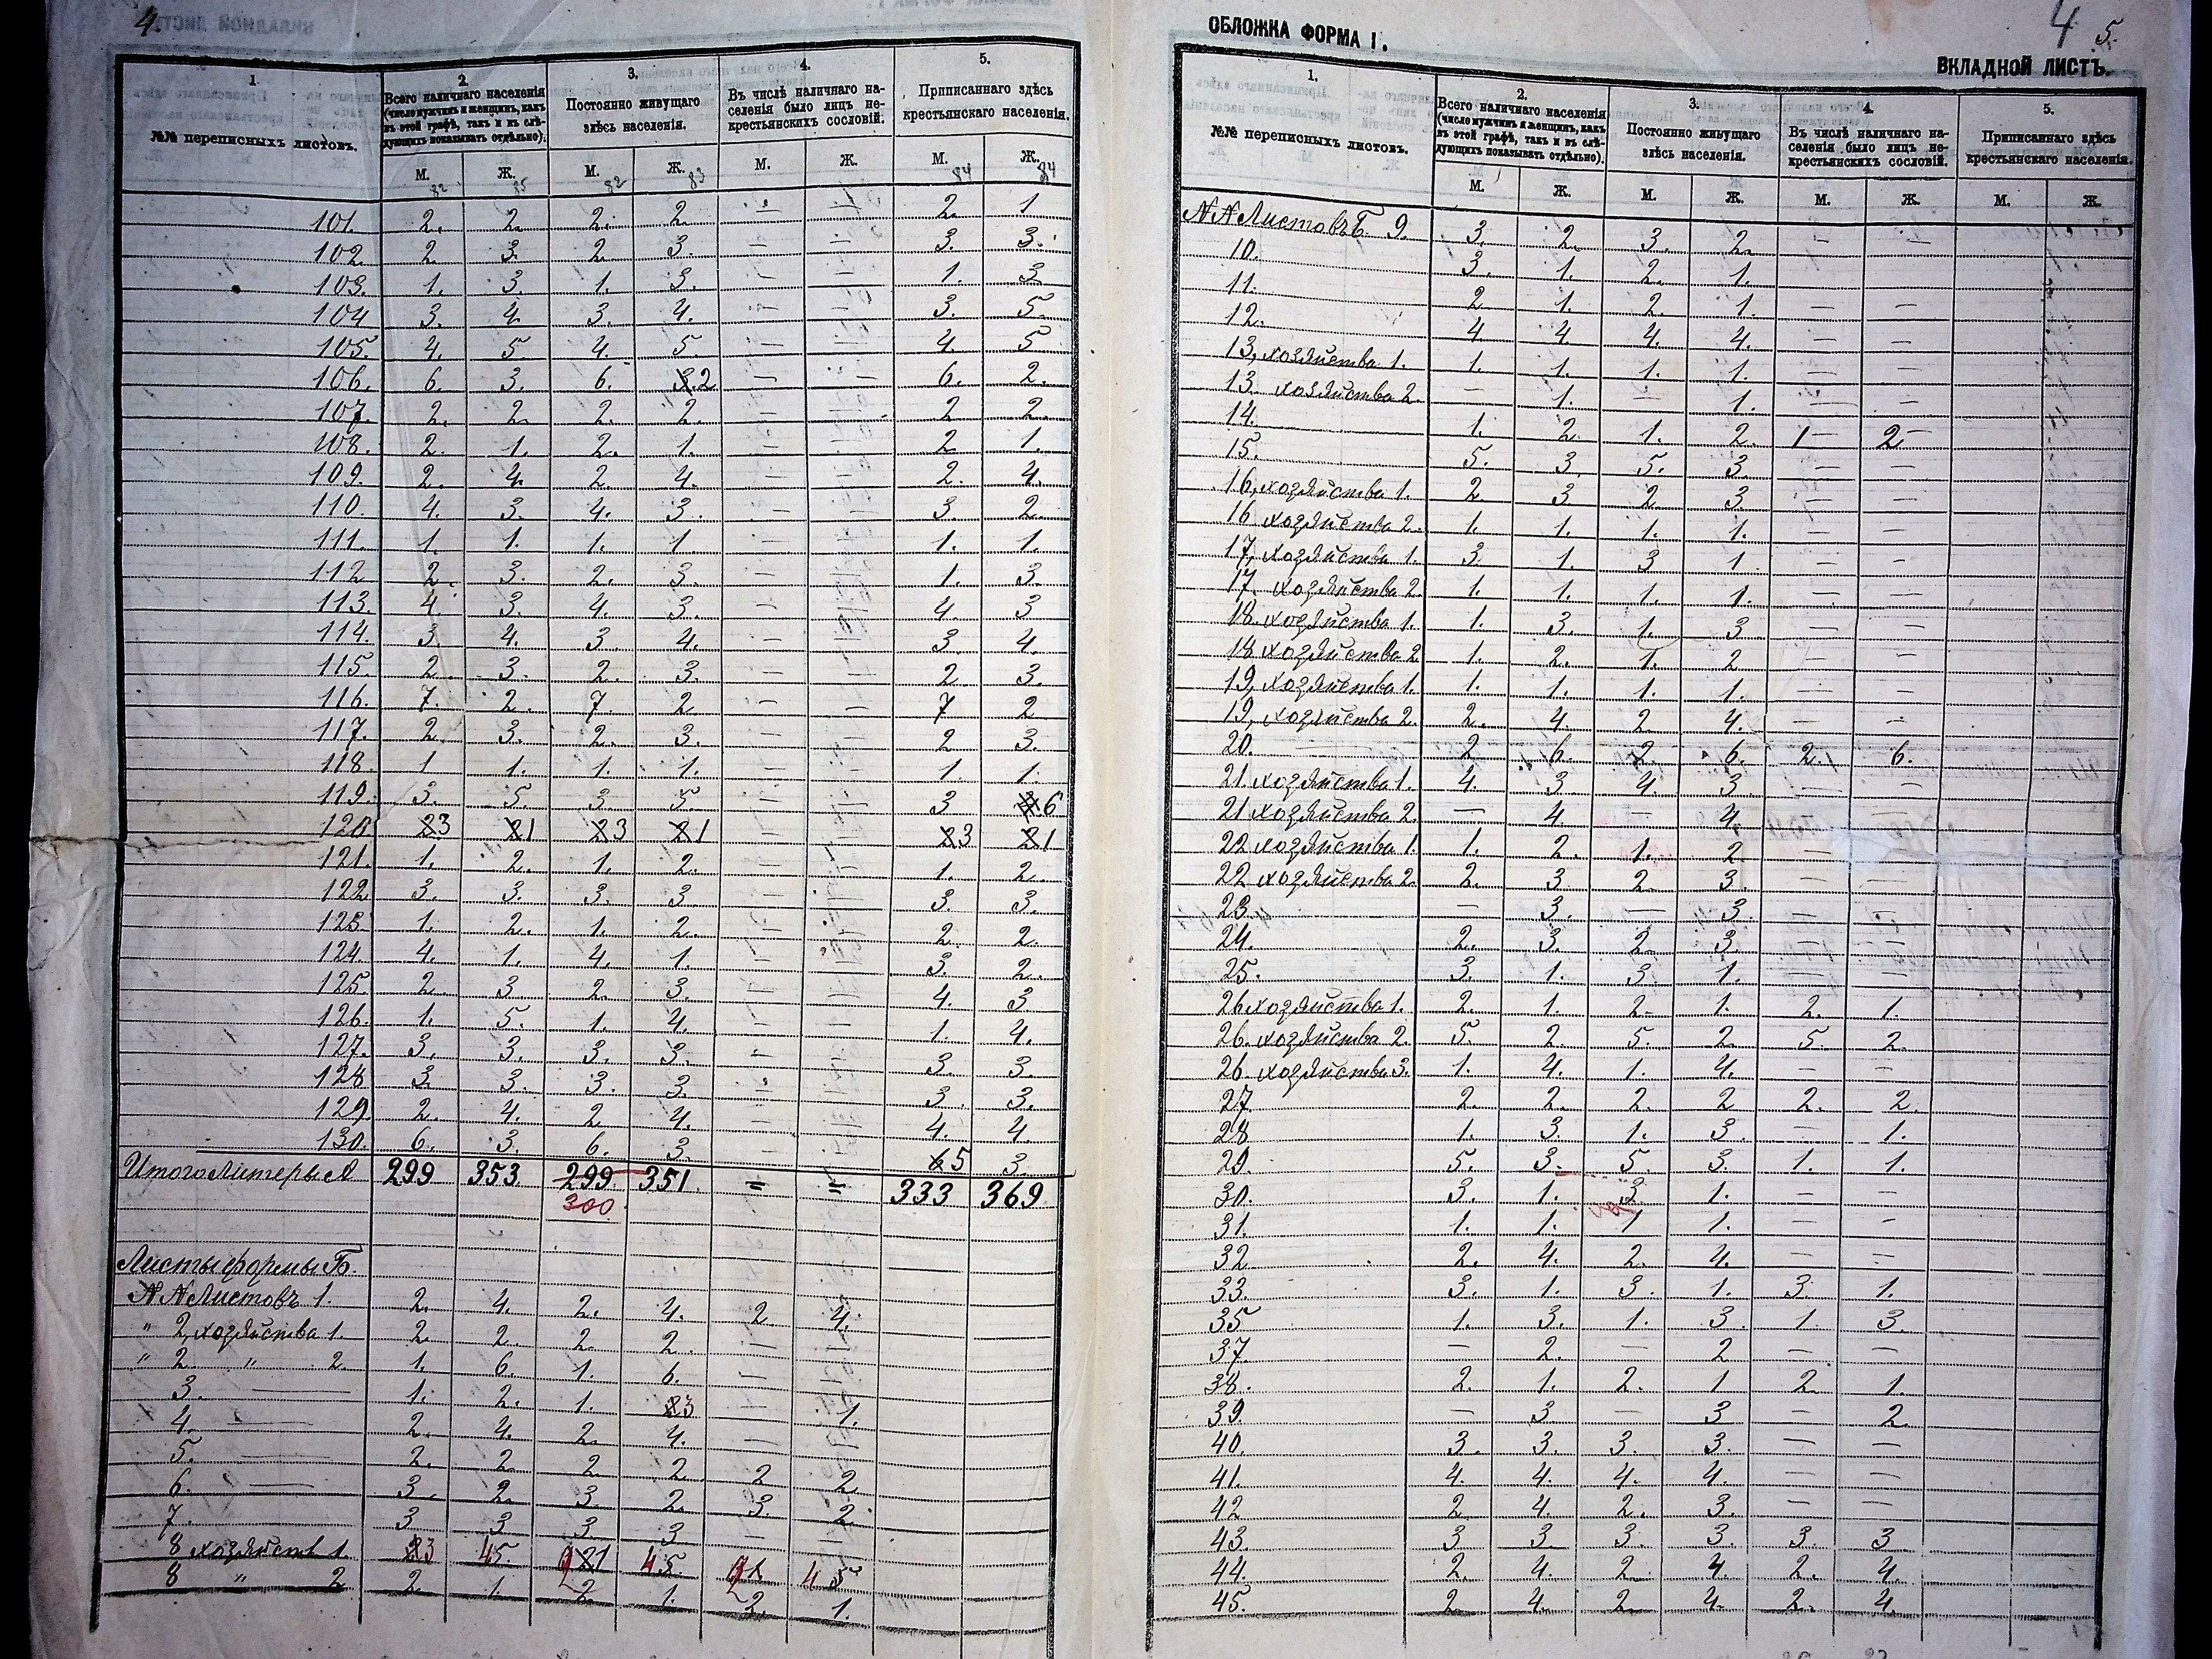 4.
1
2.
3.
4.
5.
№№ переписныхъ листовъ.
Всего наличнаго населенія (число мужчинъ и женщинъ, какъ въ этой графѣ, такъ и въ слѣдующихъ показывать отдѣльно).
Постоянно живущаго здѣсь населенія.
Въ числѣ наличнаго населенія было лицъ некрестьянскихъ сословій.
Приписаннаго здѣсь крестьянскаго населенія.
М. Ж. М. Ж. М. Ж. М. Ж.
82 85 82 83 84 84
101. 2. 2. 2. 2. — 2. 1
102. 2. 3. 2. 3. — — 3. 3.
103. 1. 3. 1. 3. — — 1. 3
104 3. 4. 3. 4. — — 3. 5.
105. 4. 5 4. 5. — — 4. 5
106. 6. 3. 6. 2 — — 6. 2.
107. 2. 2. 2. 2. — 2 2.
108. 2. 1. 2. 1. — 2 1.
109. 2. 4. 2. 4. — 2. 4.
110. 4. 3. 4. 3. — 3 2.
111. 1. 1. 1. 1. — 1. 1.
112 2. 3. 2. 3. — 1. 3.
113. 4 3. 4. 3. — 4. 3
114. 3 4. 3. 4. — 3. 4.
115. 2. 3. 2. 3. — — 2 3.
116. 7. 2. 7. 2 — — 7 2
117. 2. 3. 2. 3. — 2 3.
118 1 1. 1. 1. — 1. 1.
119. 3. 5. 3 5. — 3 6
120 3 1 3 1 3 1
121. 1. 2. 1. 2. — 1. 2.
122 3. 3. 3. 3 — 3. 3.
123 1. 2. 1. 2. — 2. 2.
124. 4. 1. 4. 1. — 3. 2.
125. 2. 3 2. 3. — 4. 3
126. 1. 5. 1. 4. — 1. 4.
127. 3. 3. 3. 3. — 3. 3.
128 3. 3. 3. 3. 3. 3.
129. 2. 4. 2 4. — 4. 4.
130. 6. 3. 6. 3. — 5 3.
Итого Литеры А 299 353 299 351. = = 333 369
300
Листы формы Б.
N N Листовъ 1. 2. 4. 2. 4. 2 4.
" 2, хозяйства 1. 2. 2. 2. 2. —
" 2. " 2. 1. 6. 1. 6. —
3. — 1. 2. 1. 3 1.
4. — 2. 4. 2. 4. —
5. — 2. 2. 2. 2. 2 2.
6. — 3. 2. 3. 2. 3. 2.
7. 3 3 3. 3 —
8 хозяйств 1. 3 45. 45. 45
8 " 2 2. 1. 2. 1. 2. 1.
ОБЛОЖКА ФОРМА I.
4 5.
ВКЛАДНОЙ ЛИСТЪ.
1.
2.
3.
4.
5.
№№ переписныхъ листовъ.
Всего наличнаго населенія (число мужчинъ и женщинъ, какъ въ этой графѣ, такъ и въ слѣдующихъ показывать отдѣльно).
Постоянно живущаго здѣсь населенія.
Въ числѣ наличнаго населенія было лицъ некрестьянскихъ сословій.
Приписаннаго здѣсь крестьянскаго населенія.
М. Ж. М. Ж. М. Ж. М. Ж.
N N Листовъ Б. 9. 3. 2. 3. 2. — —
10. 3. 1. 2. 1. — —
11. 2. 1. 2. 1. — —
12. 4 4. 4. 4. — —
13, хозяйства 1. 1. 1. 1. 1. — —
13. хозяйства 2. — 1. — 1. — —
14. 1. 2. 1. 2. 1 — 2 —
15. 5. 3 5. 3. — —
16, хозяйства 1. 2. 3 2 3. — —
16 хозяйства 2. 1. 1. 1. 1. — —
17, хозяйства 1. 3 1. 3 1. — —
17. хозяйства 2. 1. 1. 1. 1. — —
18. хозяйства 1. 1. 3. 1. 3. — —
18 хозяйства 2. 1. 2. 1. 2 — —
19, хозяйства 1. 1. 1. 1. 1. — —
19, хозяйства 2. 2. 4. 2. 4. —
20. 2 6. 2. 6. 2. 6.
21. хозяйства 1. 4. 3. 4. 3. — —
21 хозяйства 2. — 4 — 4. —
22 хозяйства 1. 1. 2. 1. 2 —
22 хозяйства 2. 2. 3 2. 3. — —
23. — 3. — 3. — —
24. 2. 3 2. 3. — —
25. 3. 1. 3. 1. — —
26 хозяйства 1. 2. 1. 2. 1. 2. 1.
26. хозяйства 2. 5. 2. 5. 2. 5. 2.
26. хозяйства 3. 1. 4. 1. 4. — —
27. 2. 2. 2. 2 2. 2.
28 1. 3. 1. 3. — 1.
29. 5. 3. 5. 3. 1. 1.
30. 3. 1. 3. 1. — —
31. 1. 1. 1 1. — —
32 2. 4. 2. 4. — —
33. 3. 1. 3. 1. 3. 1.
35 1. 3. 1. 3. 1. 3.
37. — 2. — 2 — —
38. 2. 1. 2. 1 2 1.
39. — 3 — 3 — 2.
40. 3. 3. 3. 3. — —
41. 4. 4. 4. 4. — —
42 2 4. 2. 3. — —
43. 3 3. 3. 3. 3. 3
44. 2. 4. 2. 4. 2. 4.
45. 2. 4. 2. 4. 2. 4.